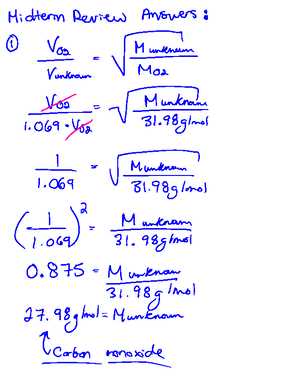 Midterm Review Answers:
① V_O2 / V_unknown = √(M unknown / M_O2)
V_O2 / 1.069 · V_O2 = √(M unknown / 31.98g/mol)
1 / 1.069 = √(M unknown / 31.98g/mol)
(1 / 1.069)² = M unknown / 31.98g/mol
0.875 = M unknown / 31.98g/mol
27.98g/mol = M unknown
Carbon monoxide